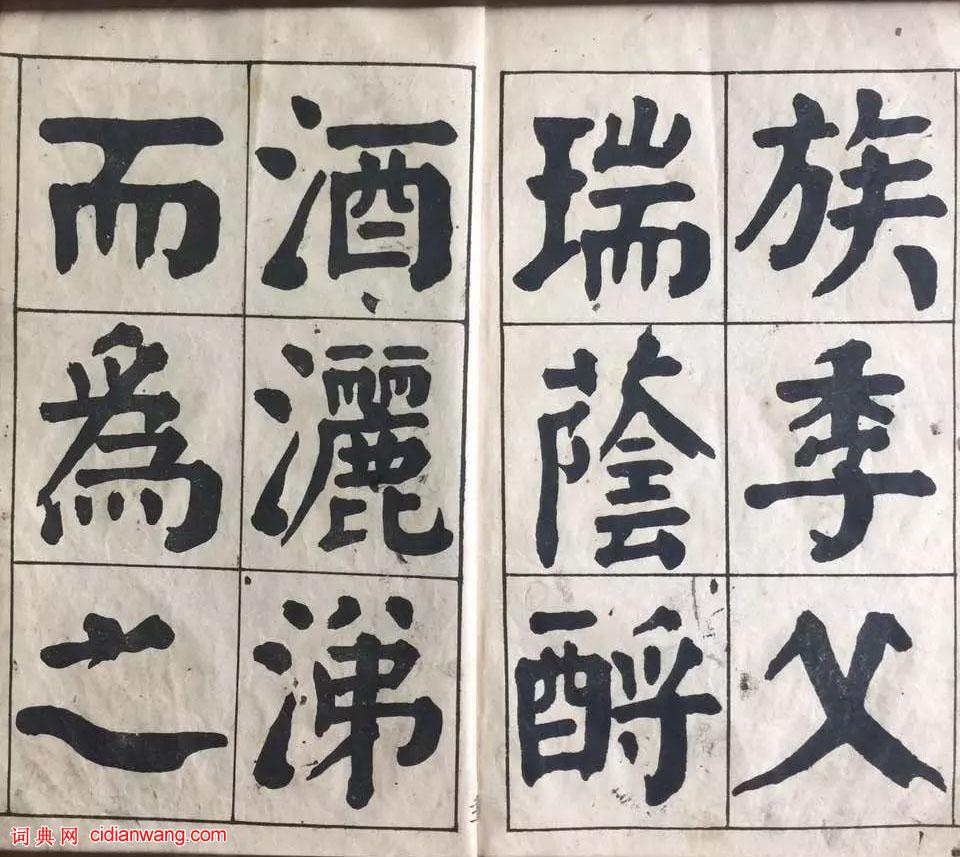 族季父
瑞蔭酹
酒灑涕
而為之
词典网 cidianwang.com